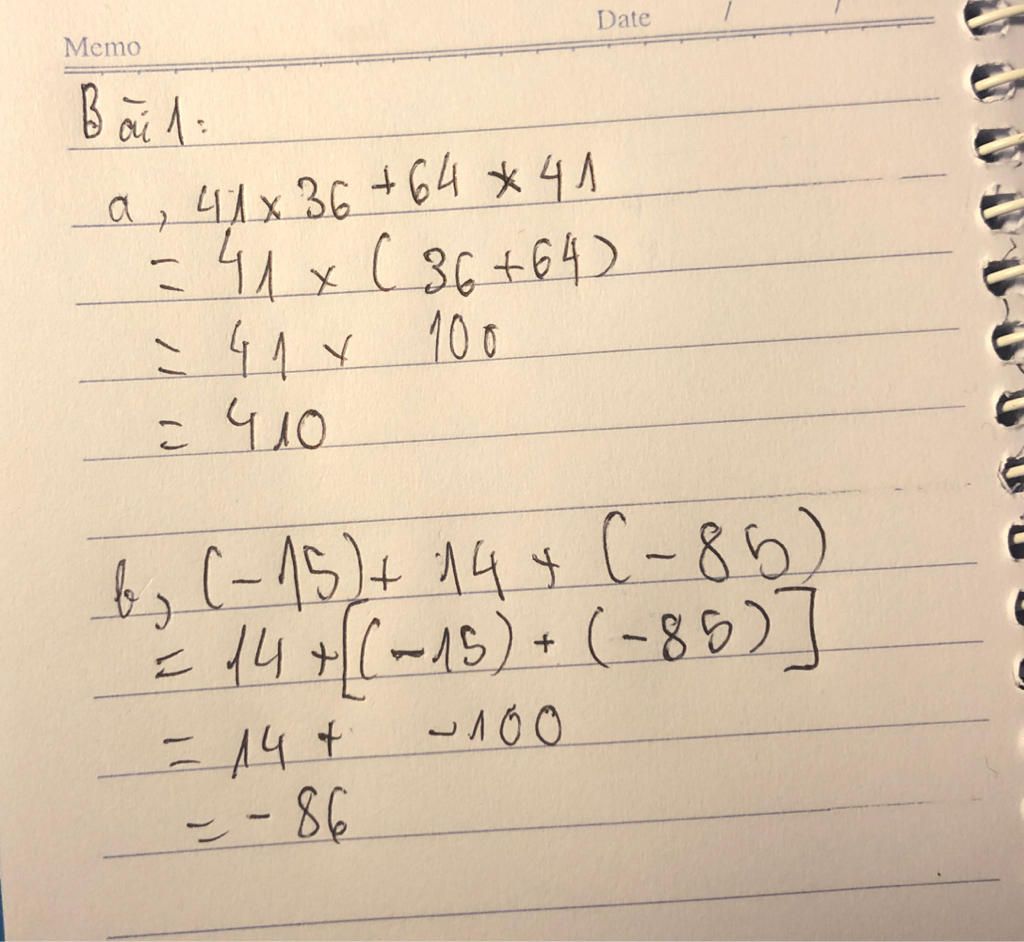 Memo
Date / /
Bài 1:
a, 41 x 36 + 64 x 41
= 41 x ( 36 + 64 )
= 41 x 100
= 410
b, (-15) + 14 + (-85)
= 14 + [(-15) + (-85)]
= 14 + -100
= - 86